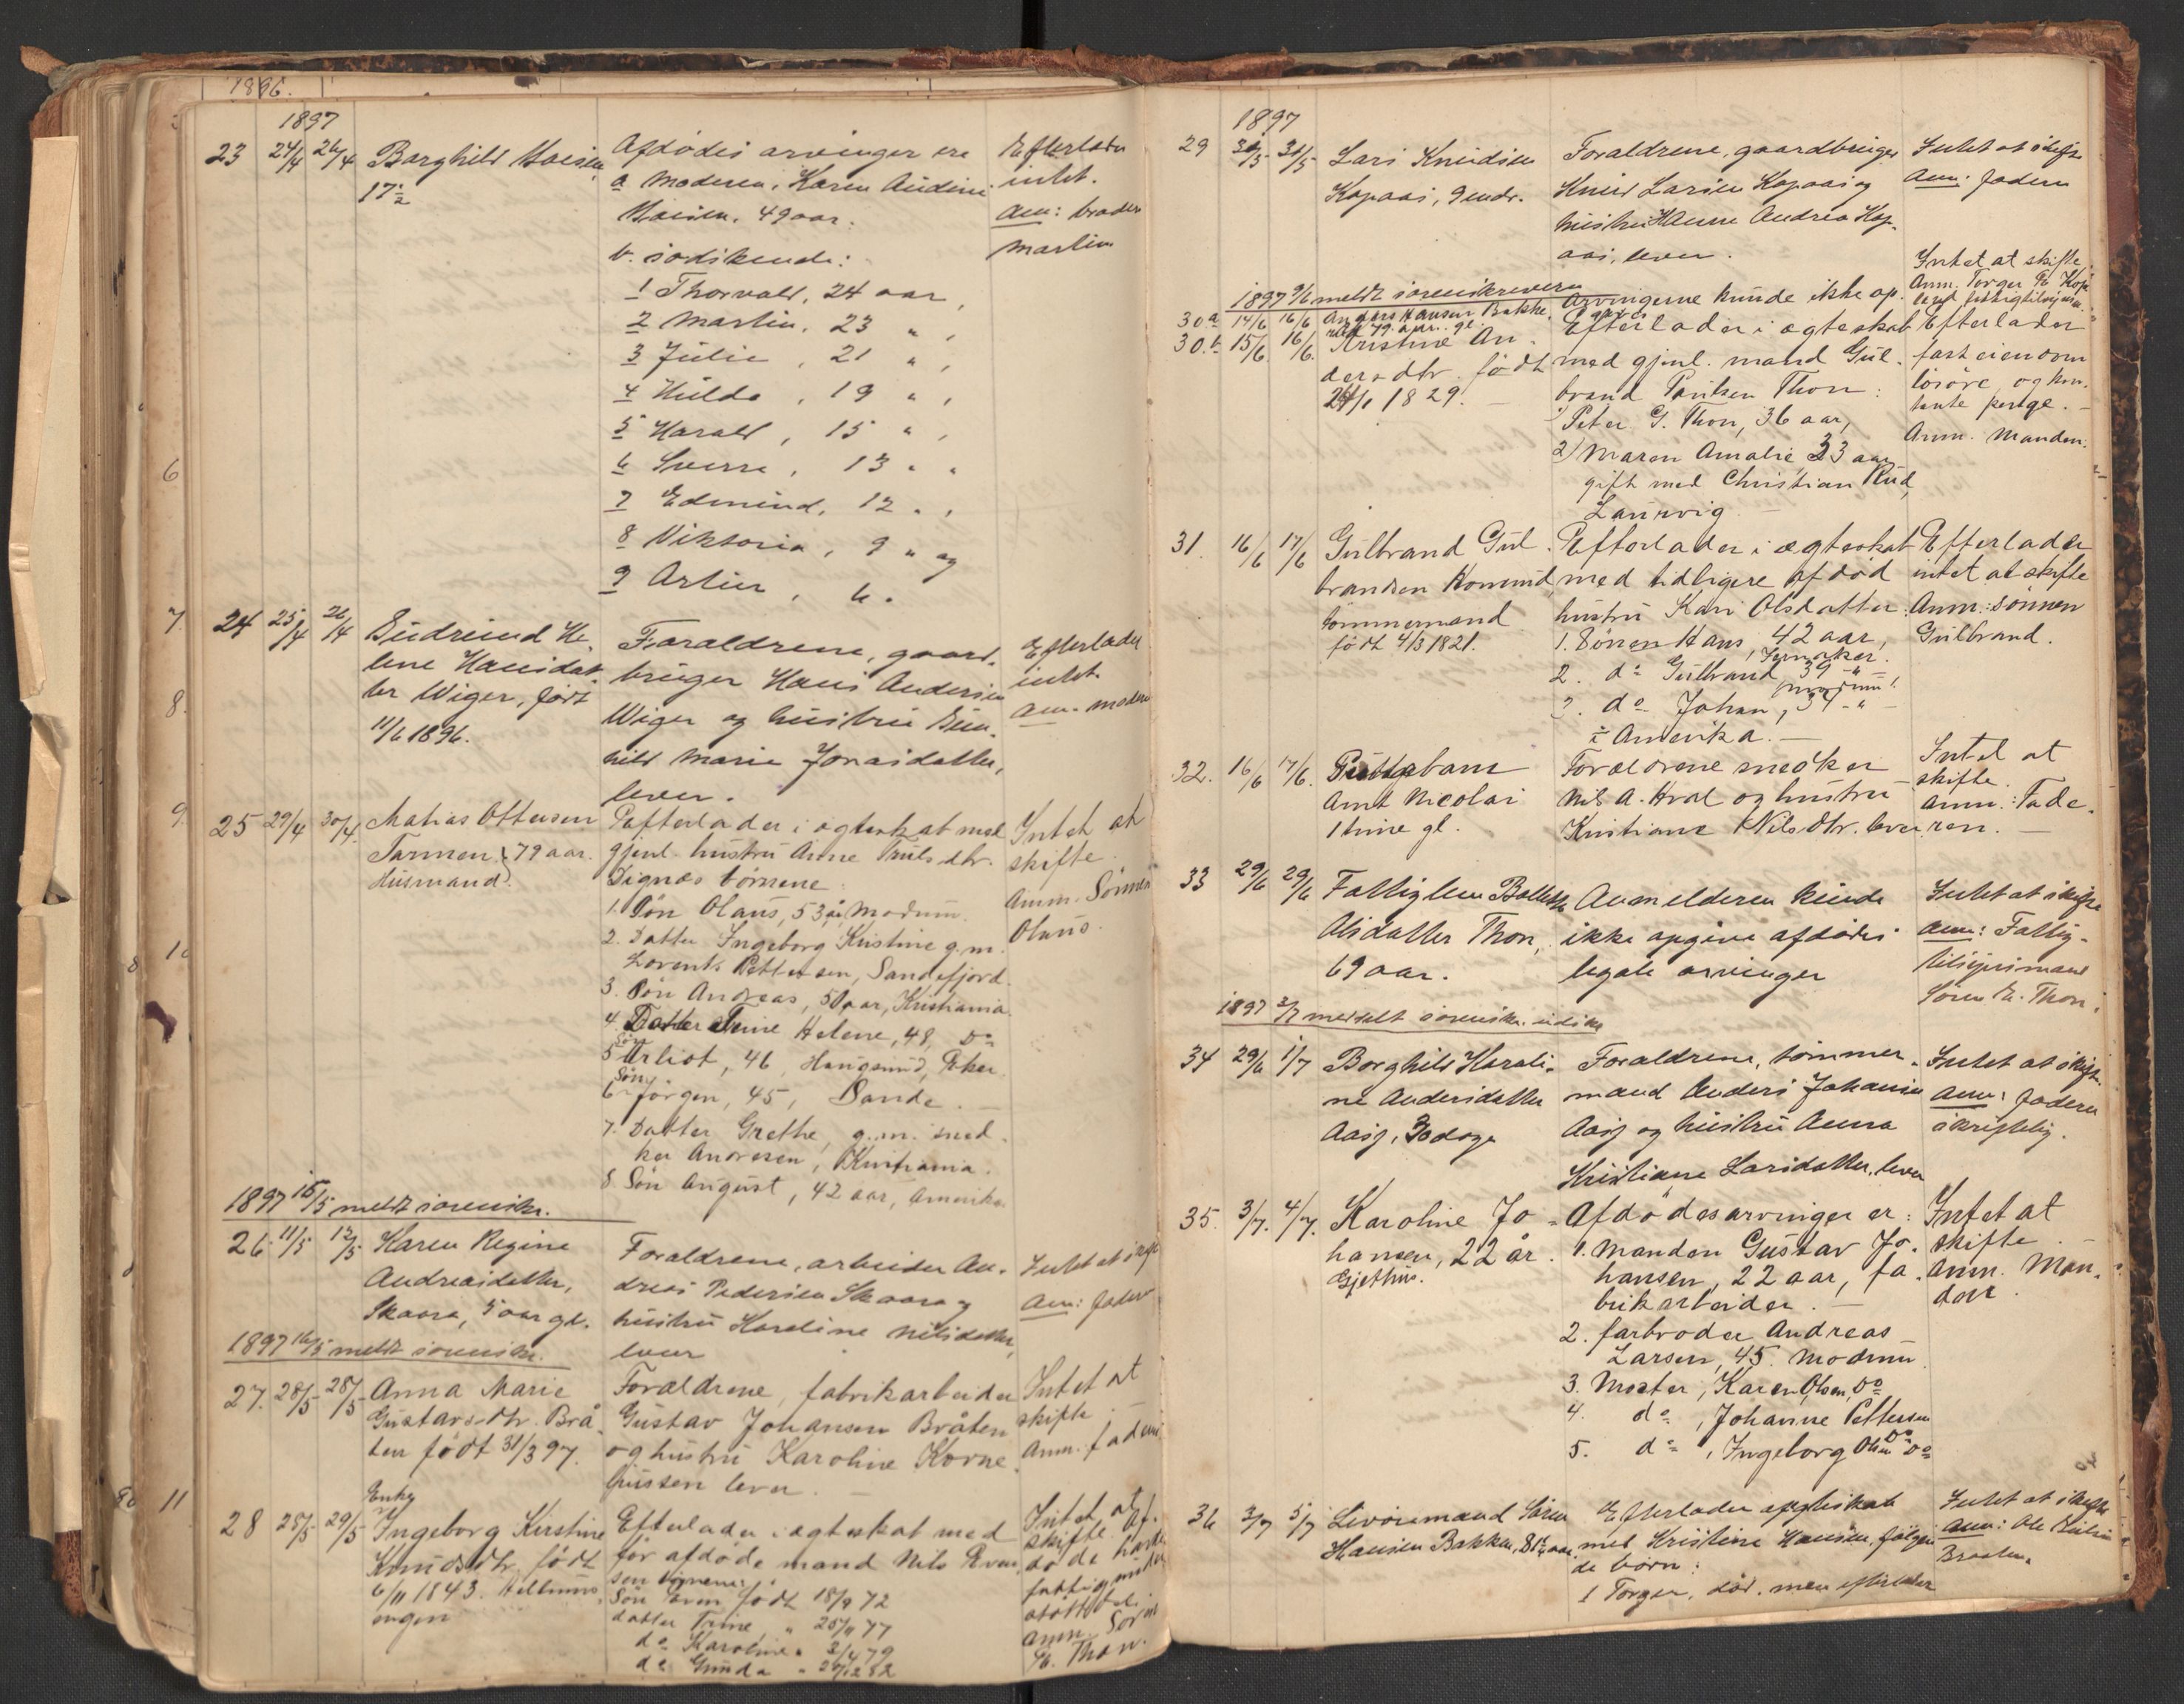 1896.
1897
23 24/4 26/4 Borghild Hansen
17 1/2
Afdødes arvinger ere
a Moderen, Karen Andine
Hansen, 49 aar.
b. sødskende:
1 Thorvald, 24 aar,
2 Martin, 23 " ,
3 Julie, 21 " ,
4 Hulda, 19 " ,
5 Harald, 15 " ,
6 Sverre, 13 " "
7 Edmund, 12 " ,
8 Viktoria, 9 " og
9 Artur, 6.
Efterlader
intet.
Anm: broder
Martin
24 25/4 26/4 Gudrund He-
lene Hansdat-
ter Wiger, født
11/6 1896.
Forældrene, gaard-
bruger Hans Andersen
Wiger og hustru Gun-
hild Marie Jonasdatter,
lever.
Efterlader
intet.
Anm. moderen
25 29/4 30/4 Matias Ottersen
Tarmen (79 aar.
Husmand).
Efterlader i ægteskab med
gjenl. hustru Anne Truls dtr.
Dignæs børnene
1. Søn Olaus, 53 år, Modum.
2. Datter Ingeborg Kristine g. m.
Lorents Pettersen, Sandefjord.
3. Søn Andreas, 50 aar, Kristiania
4. Datter Trine Helene, 48, Do
5 Søn Arliot, 46, Hougsund, Eker.
6 Søn Jørgen, 45, Sande.
7. Datter Grethe, g. m. sned-
ker Andresen, Kristiania.
8 Søn August, 42 aar, Amerika
Intet at
skifte.
Anm. Sønnen
Olaus.
1897 15/5 meldt sorenskr.
26 11/5 12/5 Karen Regine
Andreasdatter,
Skaara, 5 aar gl.
Forældrene, arbeider An-
dreas Pedersen Skaara og
hustru Karoline Nilsdatter,
lever
Intet at skifte
Anm: faderen
1897 16/5 meldt sorenskr.
27. 28/5 28/5 Anna Marie
Gustavsdtr. Brå-
ten født 31/3 97.
Forældrene, fabrikarbeider
Gustav Johansen Bråten
og hustru Karoline Korne-
liussen lever.
Intet at
skifte.
Anm. faderen
28 28/5 29/5 Enke
Ingeborg Kirstine
Knudsdtr. født
6/11 1843. Hellums-
engen
Efterlader i ægteskab med
før afdøde mand Nils Even-
sen børnene:
Søn Even født 18/9 72
datter Trine, " 25/11 77
do Karoline " 2/4 79
do Gunda " 29/12 82
Intet at
skifte. Af-
døde havde
fattigunder-
støttelse.
Anm. Søren
E. Thon.
6
7.
8.
9.
10
11
1897
29 30/5 31/5 Lars Knudsen
Kopaas, 9 mdr.
Forældrene, gaardbruger
Knud Larsen Kopaas og
hustru Hanne Andrea Kop-
aas, lever.
Intet at skifte
Anm: faderen
1897 9/6 meldt sorenskriveren
30.a 14/6 16/6 Anders Hansen Bakke,
79 aar gl.
Arvingerne kunde ikke op-
gives
Intet at skifte.
Anm. Torger
fattigtilsynsm.
30.b 15/6 16/6. Kristine An-
ders dtr. født
24/1 1829.
Efterlader i ægteskab
med gjenl. mand Gul-
brand Paulsen Thon:
1) Peter G. Thon, 36 aar,
2) Maren Amalie 33 aar
gift med Christian Rud,
Laurvig.
Efterlader
fast eiendom
løsøre, og kon-
tante penge.
Anm. Manden.
31. 16/6 17/6 Gulbrand Gul-
brandsen Komund,
tømmermand
født 4/3 1821.
Efterlader i ægteskab
med tidligere afdød
hustru Kari Olsdatter.
1. Sønnen Hans, 42 aar,
2. do Gulbrand, 39 "
3. do Johan, 34 "
i Amerika.
Efterlader
intet at skifte
Anm: sønnen
Gulbrand.
32. 16/6 17/6. Guttebarn
Arnt Nicolai
1 time gl.
Forældrene snedker
Nils A. Hval og hustru
Kristiane Nilsdtr. lever.
Intet at
skifte.
Anm.: Fade-
ren.
33 29/6 29/6 Fattiglem Bollette
Olsdatter Thon,
69 aar.
Anmelderen kunde
ikke opgive afdødes
legale arvinger
Intet at skifte
Anm: Fattig-
tilsynsmand
Søren E. Thon.
1897 2/7 meddelt sorenskr. udskr.
34 29/6 1/7 Borghild Karoli-
ne Andersdatter
Aasg, 30 dage
Forældrene, tømmer-
mand Anders Johansen
Aasg og hustru Anna
Kristiane Larsdatter, lever
Intet at skifte.
Anm: faderen
skriftlig.
35. 3/7. 4/7. Karoline Jo-
hansen, 22 år.
Gjethus.
Afdødes arvinger er:
1. Manden Gustav Jo-
hansen, 22 aar, fa-
brikarbeider.
2. farbroder Andreas
Larsen, 45. Modum
3. Moster, Karen Olsen, Do
4. do, Johanne Pettersen
Do
5. do, Ingeborg Olsen Do
Intet at
skifte.
Anm. Man-
den.
36 3/7 5/7 Livøremand Søren
Hansen Bakken, 81 1/4 aar,
Efterlader ægteskab
med Kristine Hansen, følgen-
de børn:
1 Torger, død, men efterlader
Intet at skifte
Anm: Ole
Braaten.